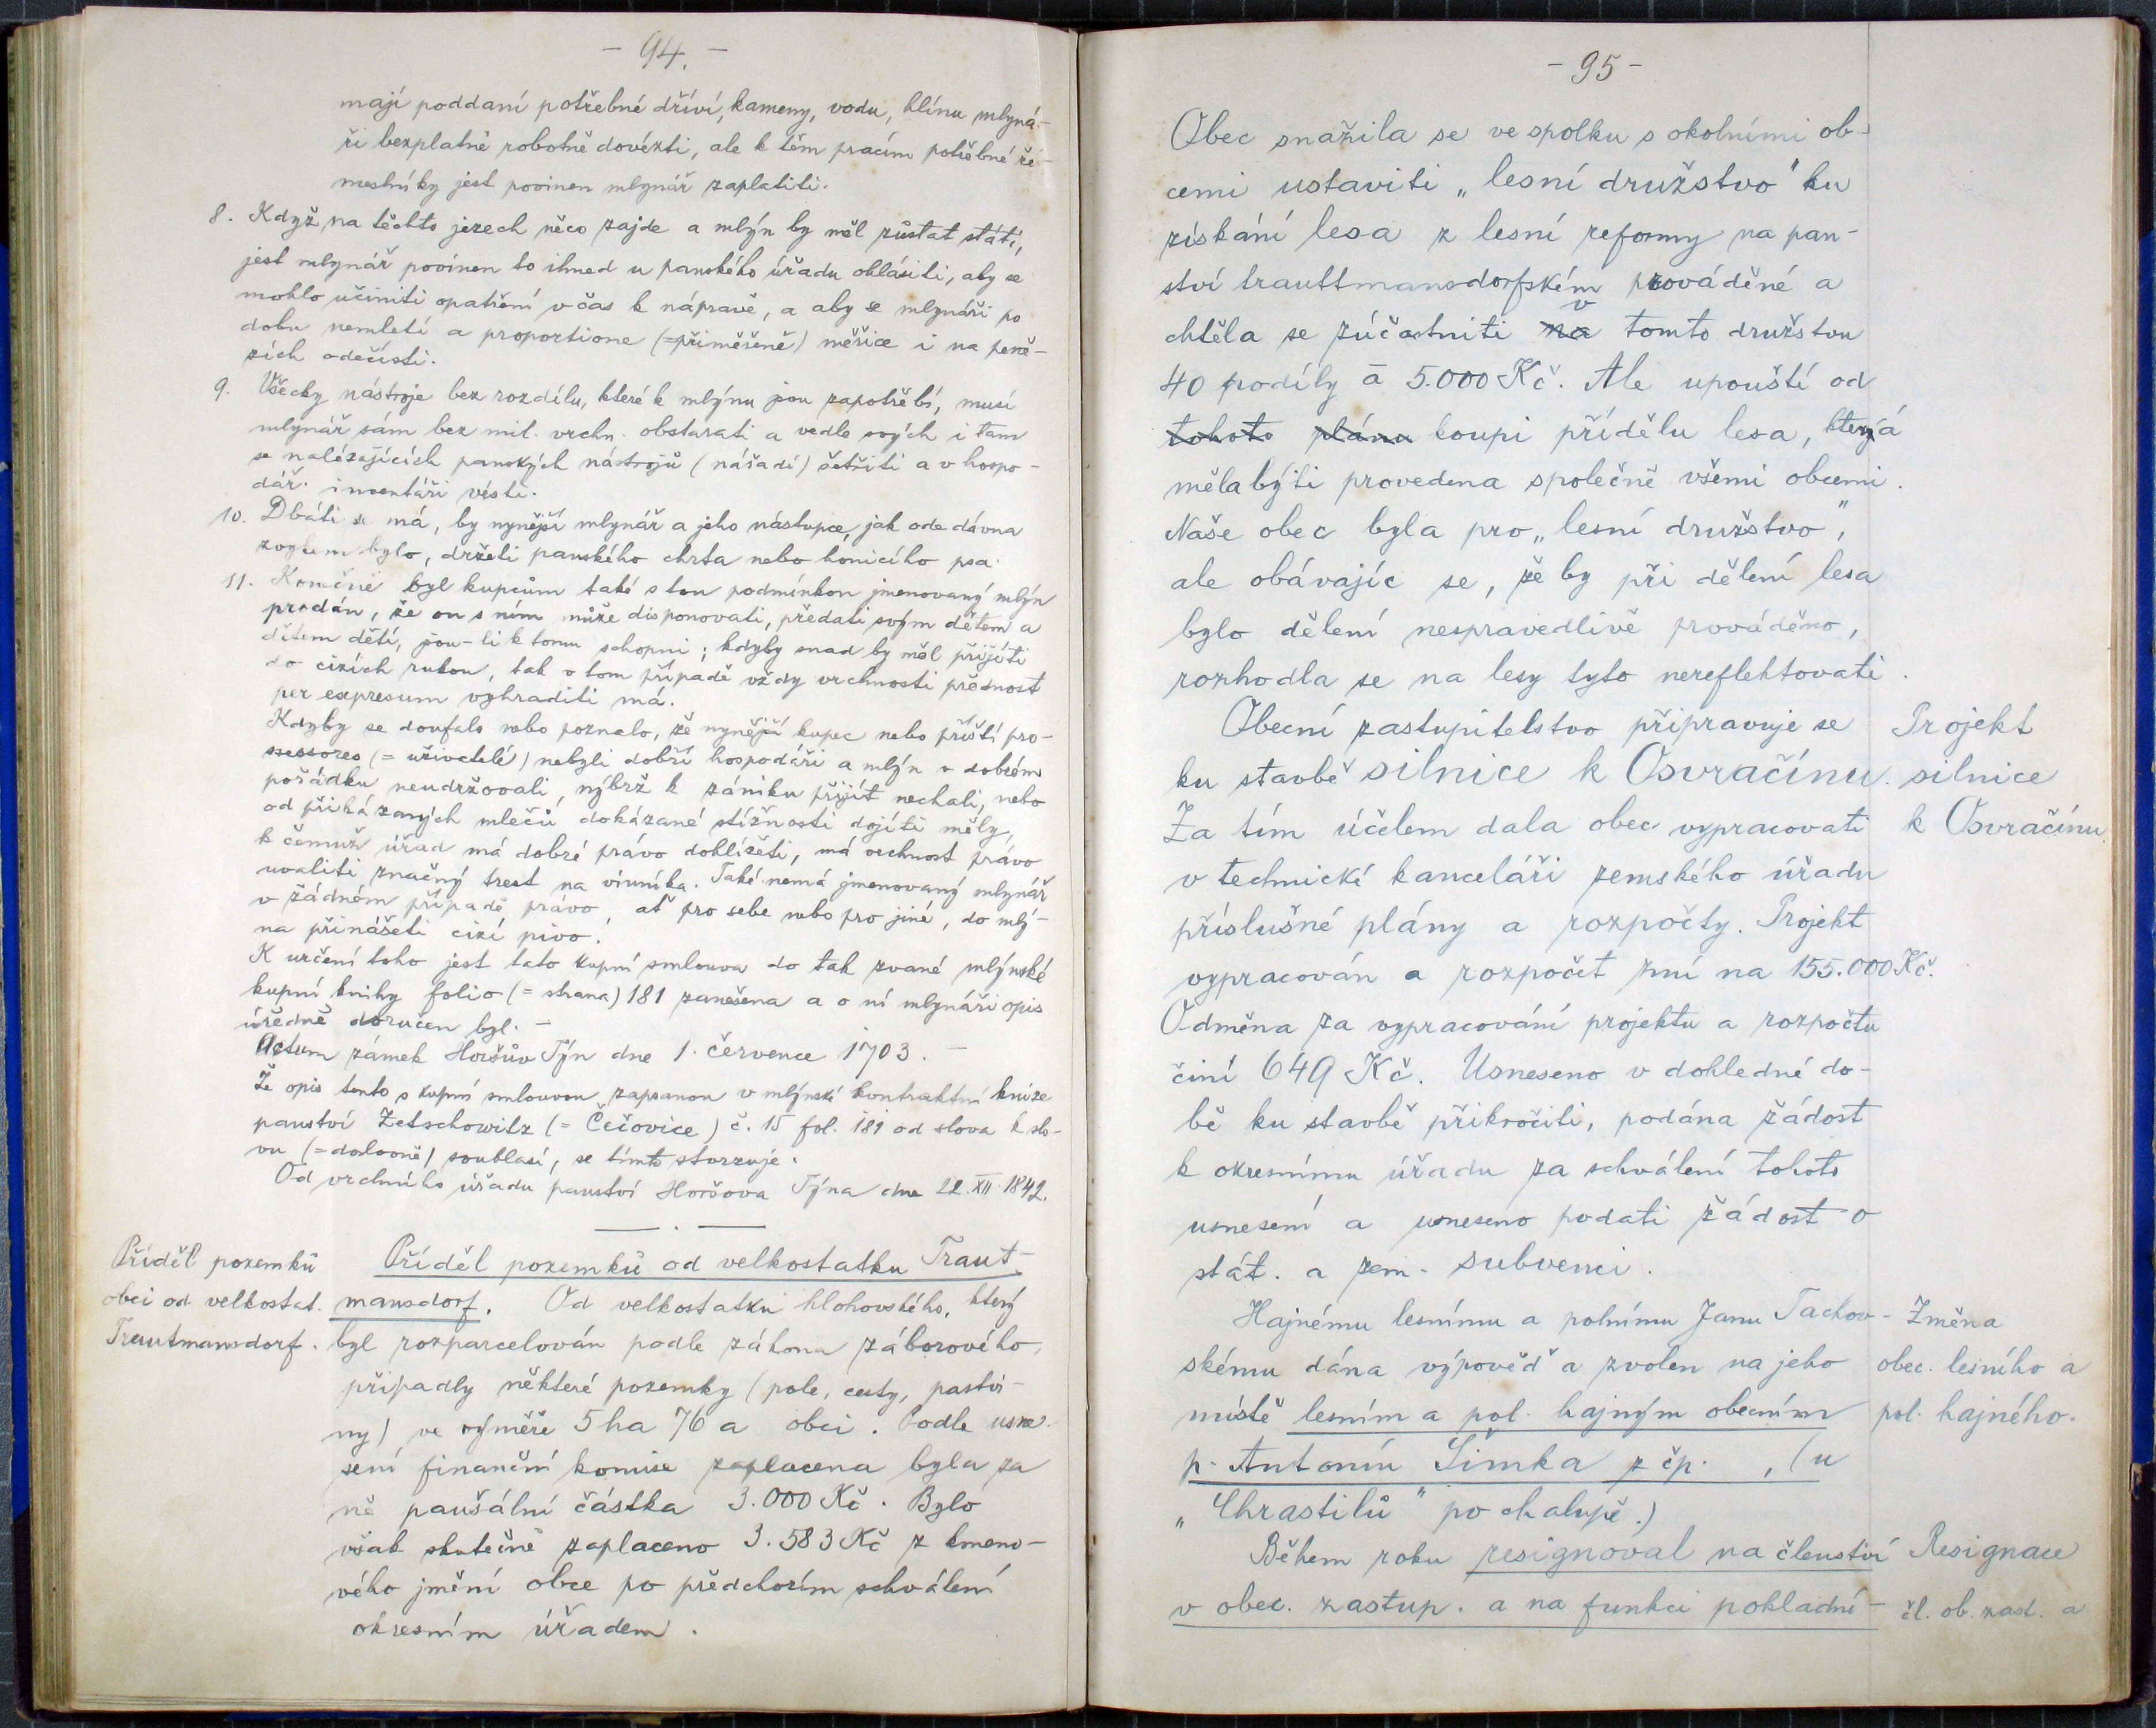 - 94. -
mají poddaní potřebné dříví, kameny, vodu, hlínu mlyná-
ři bezplatně robotně dovézti, ale k těm pracím potřebné ře-
meslníky jest povinen mlynář zaplatiti.
8. Když na těchto jezech něco zajde a mlýn by měl zůstat státi,
jest mlynář povinen to ihned u panského úřadu ohlásiti, aby se
mohlo učiniti opatření v čas k nápravě, a aby se mlynáři po
dobu nemletí a proportione (=přiměřeně) měřice i na peně-
zích odečísti.
9. Všecky nástroje bez rozdílu, které k mlýnu jsou zapotřebí, musí
mlynář sám bez mil. vrchn. obstarati a vedle svých i tam
se nalézajících panských nástrojů (nářadí) šetřiti a v hospo-
dář. inventáři vésti.
10. Dbáti se má, by nynější mlynář a jeho nástupce, jak ode dávna
zvykem bylo, drželi panského chrta nebo honicího psa.
11. Konečně byl kupcům také s tou podmínkou jmenovaný mlýn
prodán, že on s ním může disponovati, předati svým dětem a
dětem dětí, jsou-li k tomu schopni; kdyby snad by měl přijíti
do cizích rukou, tak v tom případě vždy vrchnosti přednost
per expresum vyhraditi má.
Kdyby se doufalo nebo poznalo, že nynější kupec nebo příští pro-
ssessores (= uživatelé) nebyli dobří hospodáři a mlýn v dobrém
pořádku neudržovali, nýbrž k zániku přijít nechali, nebo
od přikázaných mlečů dokázané stížnosti dojíti měly,
k čemuž úřad má dobré právo dohlížeti, má vrchnost právo
uvaliti značný trest na viníka. Také nemá jmenovaný mlynář
v žádném případě právo, ať pro sebe nebo pro jiné, do mlý-
na přinášeti cizí pivo.
K určení toho jest tato kupní smlouva do tak zvané mlýnské
kupní knihy folio (= strana) 181 zanešena a o ní mlynáři opis
úředně doručen byl. -
Actum zámek Horšův Týn dne 1. července 1703. -
Že opis tento s kupní smlouvou zapsanou v mlýnské kontraktní knize
panství Zetschowitz (= Čečovice) č. 15 fol. 181 od slova k slo-
vu (=doslovně) souhlasí, se tímto stvrzuje.
Od vrchního úřadu panství Horšova Týna dne 22. XII. 1842.
Příděl pozemků
obci od velkostat.
Trautmansdorf.
Příděl pozemků od velkostatku Traut-
mansdorf. Od velkostatku hlohovského, který
byl rozparcelován podle zákona záborového,
připadly některé pozemky (pole, cesty, pastvi-
ny) ve výměře 5 ha 76 a obci. Podle usne-
sení finanční komise zaplacena byla za
ně paušální částka 3.000 Kč. Bylo
však skutečně zaplaceno 3.583 Kč z kmeno-
vého jmění obce po předchozím schválení
okresním úřadem.
- 95 -
Obec snažila se ve spolku s okolními ob-
cemi ustaviti „lesní družstvo" ku
získání lesa z lesní reformy na pan-
ství trauttmansdorfském prováděné a
chtěla se zúčastniti na v tomto družstvu
40 podíly à 5.000 Kč. Ale upouští od
tohoto plánu koupi přídělu lesa, která
měla býti provedena společně všemi obcemi.
Naše obec byla pro „lesní družstvo",
ale obávajíc se, že by při dělení lesa
bylo dělení nespravedlivě prováděno,
rozhodla se na lesy tyto nereflektovati.
Obecní zastupitelstvo připravuje se
ku stavbě silnice k Osvračínu.
Za tím účelem dala obec vypracovati
v technické kanceláři zemského úřadu
příslušné plány a rozpočty. Projekt
vypracován a rozpočet zní na 155.000 Kč.
Odměna za vypracování projektu a rozpočtu
činí 649 Kč. Usneseno v dohledné do-
bě ku stavbě přikročiti, podána žádost
k okresnímu úřadu za schválení tohoto
usnesení a usneseno podati žádost o
stát. a zem. subvenci.
Projekt
silnice
k Osvračínu.
Hajnému lesnímu a polnímu Janu Tachov-
skému dána výpověď a zvolen na jeho
místě lesním a pol. hajným obecním
p. Antonín Šimka z čp. , (u
„Chrastilů" po chalupě.)
Změna
obec. lesního a
pol. hajného.
Během roku resignoval na členství
v obec. zastup. a na funkci pokladní-
Resignace
čl. ob. zast. a